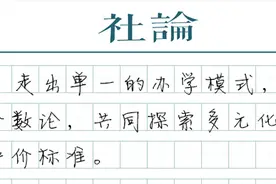 社論
走出单一的办学模式，
数论，共同探索多元化
价标准。